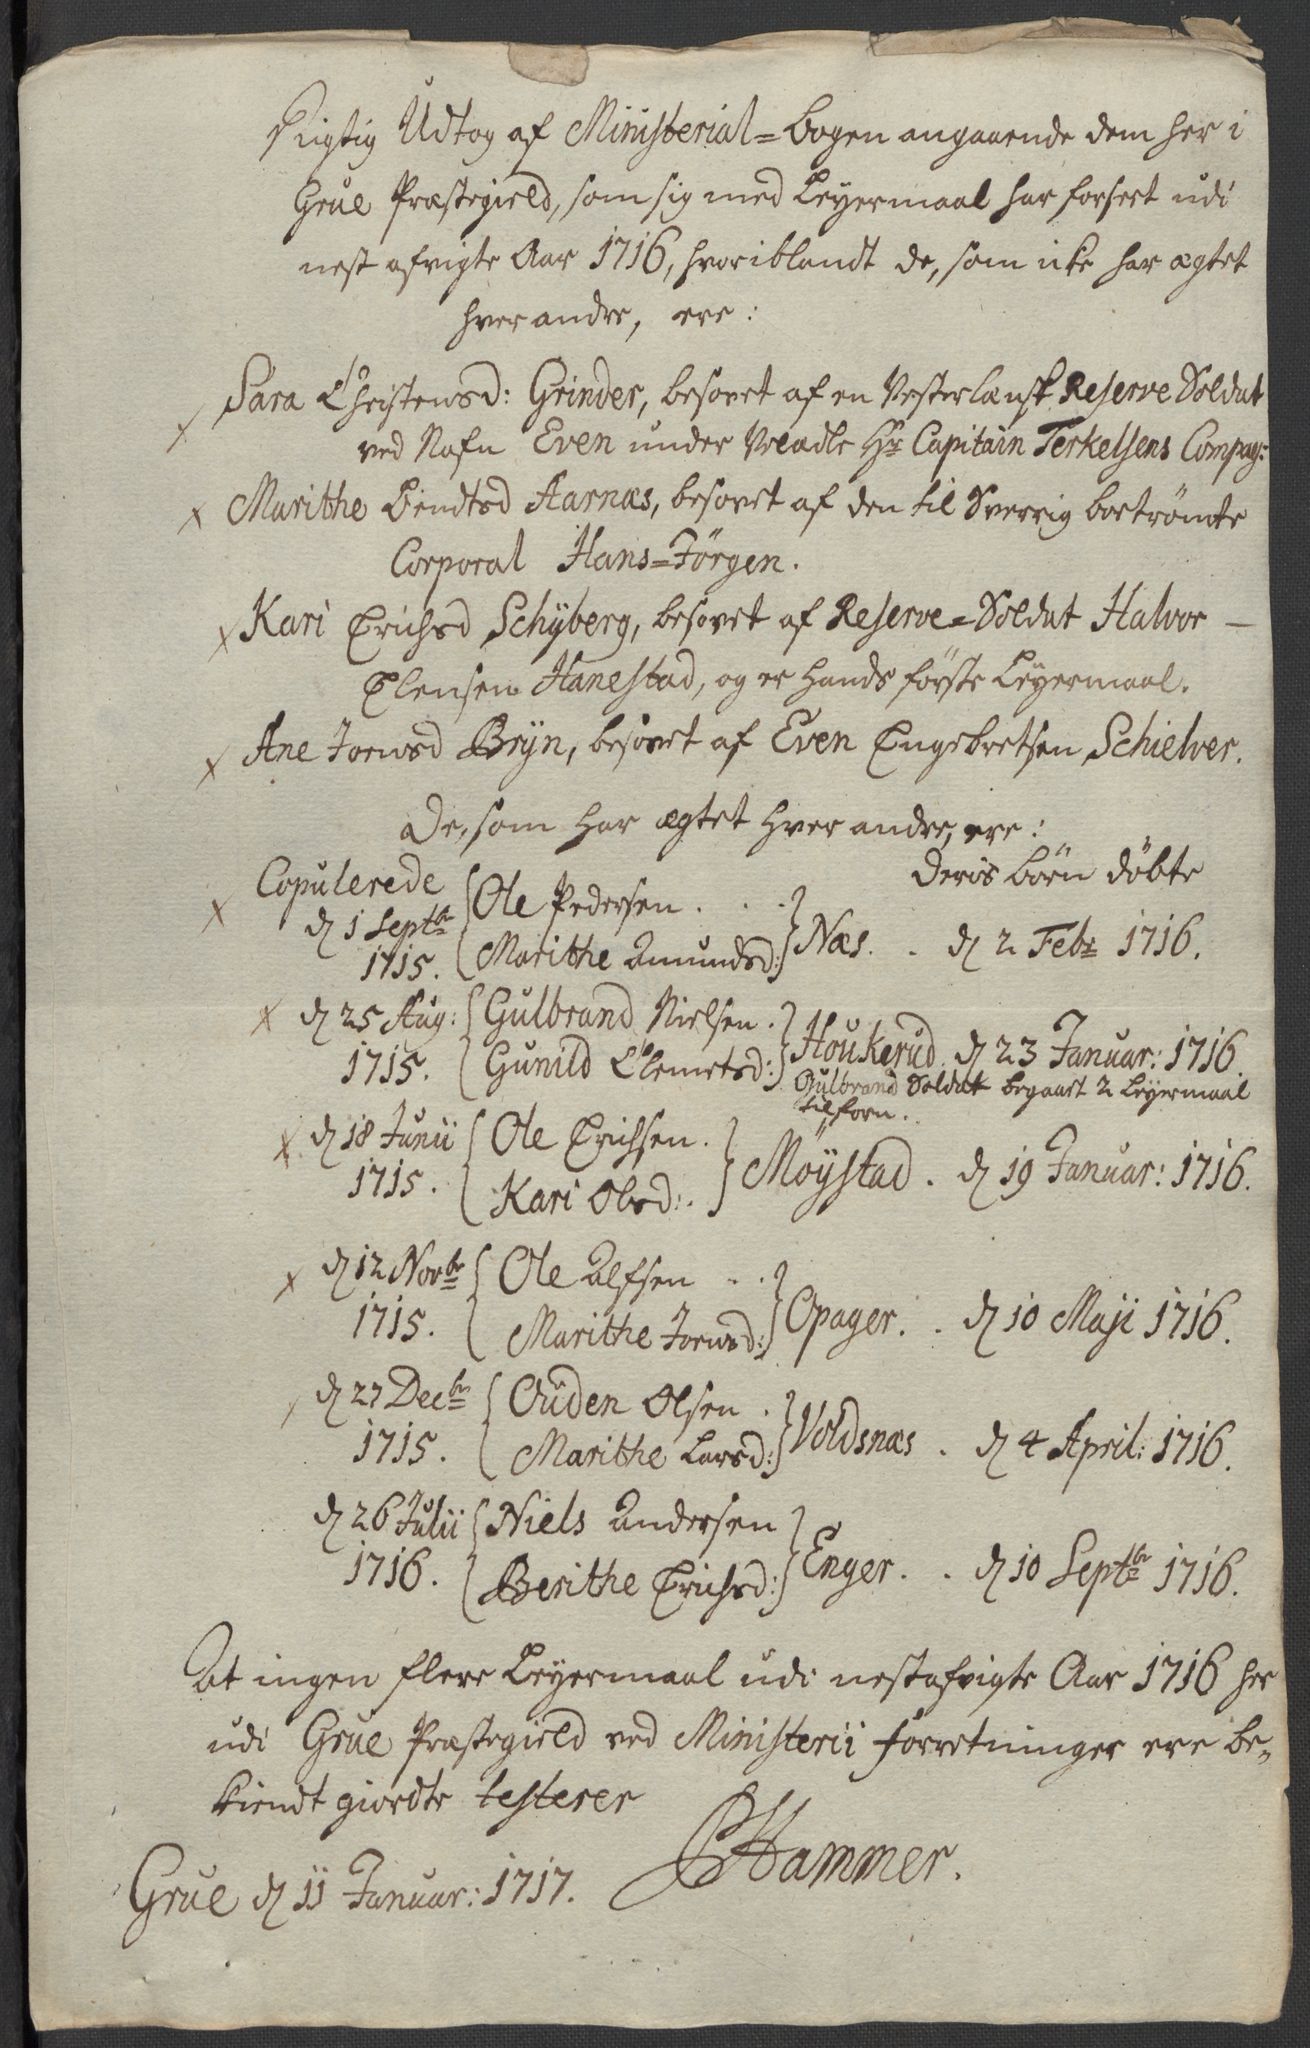 Rigtig Udtog af Ministerial=bogen angaaende dem her i
Grue Præstegield, som sig med Leyermaal har forseet udi
nest afvigte Aar 1716, hvoriblandt de, som icke har ægtet
hverandre, ere:
Sara Christensd: Grinder, besovet af en Vesterlænsk Reserve Soldat
ved Nafn Even under Velædle Hr Capitain Terkelsens Compag:
Marithe Bendtsd Aarnæs, besovet af den til Sverrig bortrömte
Corporal Hans=Jörgen.
Kari Erichsd Schÿberg, besovet af Reserve=Soldat Halvor –
Elensen Hanestad, og er hands förste Leyermaal.
Ane Joensd Brÿn, besovet af Even Engebretsen Schielver.
De, som har ægtet hverandre, ere:
Copulerede
Deris börn döbte
d 1 Septbr 1715. Ole Pedersen . . .
Marithe Amundsd: Næs. . d 2 Febr 1716.
d 25 Aug: 1715. Gulbrand Nielsen .
Gunild Clemetsd: Houkerud d 23 Januar: 1716.
Gulbrand Soldat begaaet 2 Leyermaal
tilforn.
d 18 Junii 1715. Ole Erichsen .
Kari Olsd: . Möÿstad . d 19 Januar: 1716.
d 12 Novbr 1715. Ole Alfsen . .
Marithe Joensd: Opager. . d 10 Maji 1716.
d 27 Decbr 1715. Ouden Olsen .
Marithe Larsd: Voldsnæs . d 4 April: 1716.
d 26 Julii 1716. Niels Andersen
Berithe Erichsd: Enger. . d 10 Septbr 1716.
At ingen flere Leyermaal udi nestafvigte Aar 1716 her
udi Grue Præstegield ved Ministerii forretninger ere be-
kiendt giordte testerer
Hammer.
Grue d 11 Januar: 1717.